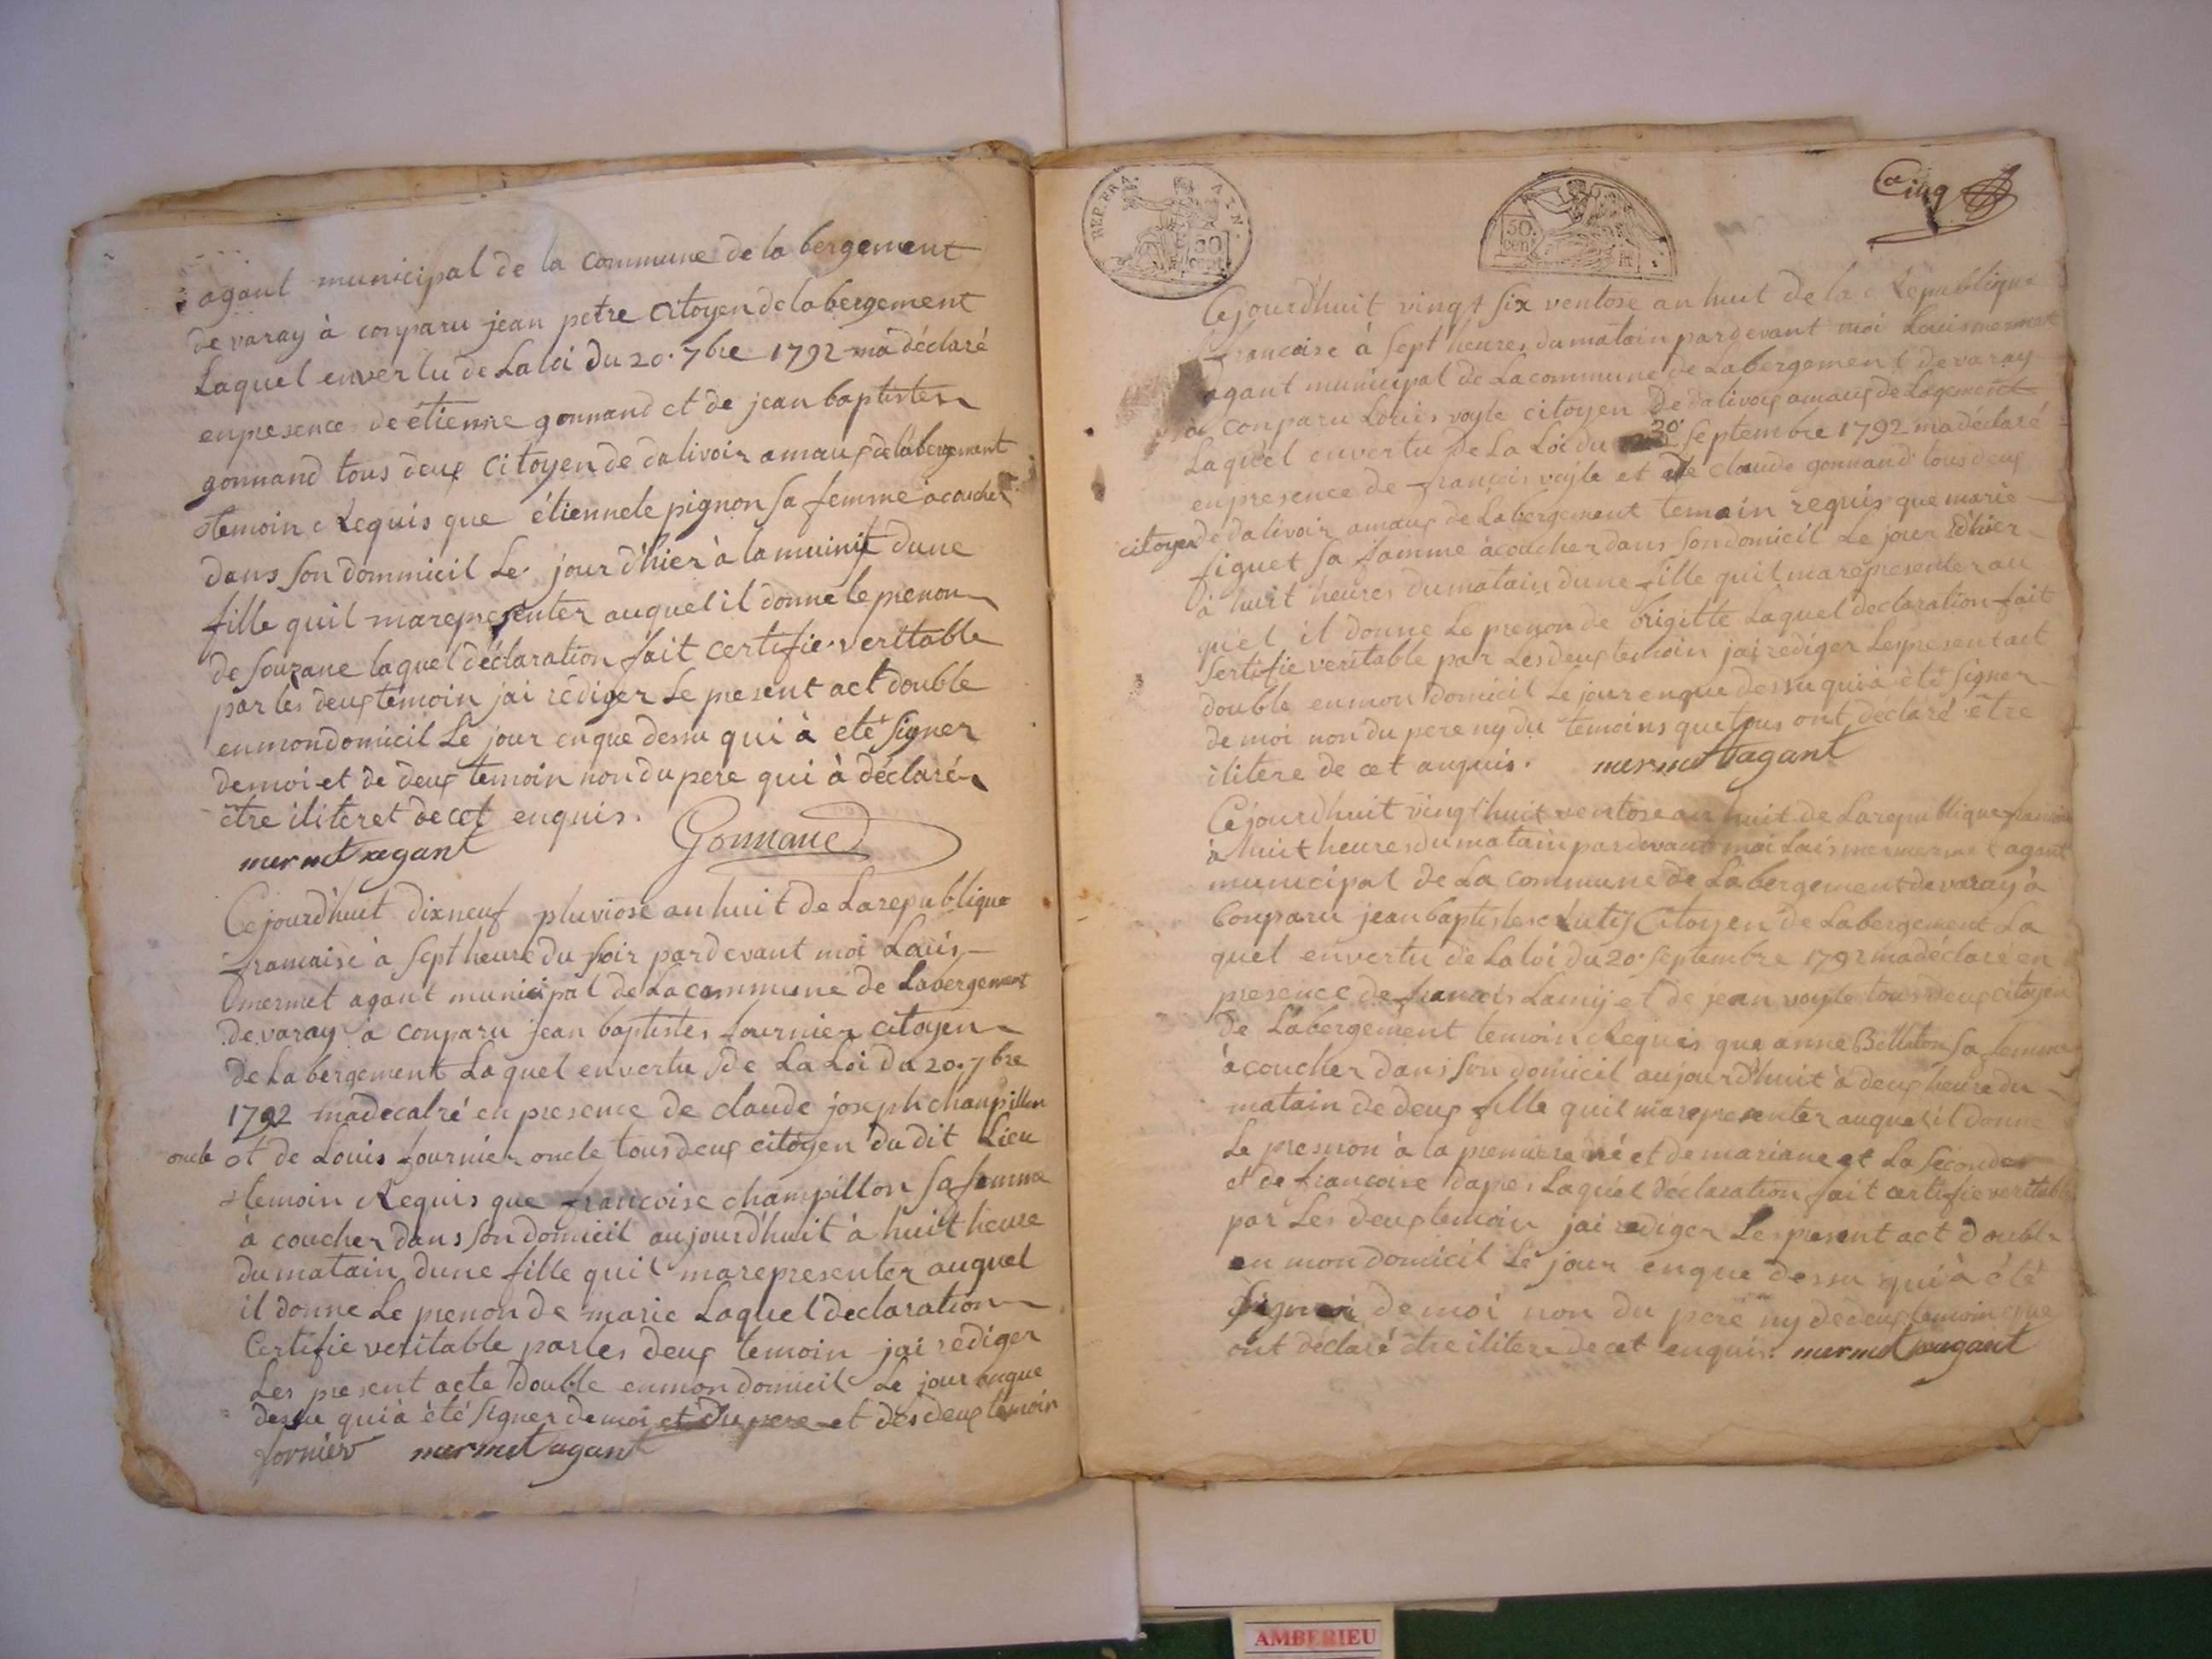 agant municipal de la commune de la bergement
de varay à conparu jean petre citoyen de la bergement
Laquel en vertu de La loi du 20. 7bre 1792 ma déclaré
en presence de étienne gonnand et de jean baptistes
gonnand tous deux citoyen de dalivoir amaux de labergement
temoin Requis que étiennete pignon sa femme à coucher
dans son dommicil Le jour d'hier à la muinit dune
fille quil marepresenter auquel il donne le prenon
de souzane laquel déclaration fait certifie veritable
par les deux temoin jai rédiger Le present act double
en mon domicil Le jour en que dessu qui à eté signer
de moi et de deux temoin non du pere qui à déclaré
être iliteret de cet enquis.
mermet agant Gonnand
Cejourd'huit dixneuf pluviose an huit de La republique
francaise à sept heure du soir pardevant moi Louis
mermet agant municipal de La commune de Labergement
de varay à conparu jean baptistes fournier citoyen
de La bergement Laquel en vertu de La Loi du 20. 7bre
1792 madecalré en presence de claude joseph chanpillon
oncle et de Louis fournier oncle tous deux citoyen du dit Lieu
temoin Requis que francoise champillon sa femme
à coucher dans son domicil aujourd'huit à huit heure
du matain dune fille quil marepresenter auquel
il donne Le prenon de marie Laquel declaration
Certifie veritable par les deux temoin jai rédiger
Les present acte double en mon domicil Le jour enque
dessu qui à été signer de moi et du pere et des deux temoin
fornier mermet agant
REP. FRA. AIN.
50 cent
50. cen
Cinq
Cejourd'huit vingt six ventose an huit de la Republique
francaise à sept heures du matain pardevant moi Louis mermet
agant municipal de La commune de Labergement de varay
à conparu Louis voyle citoyen de dalivoix amaux de Lagement
Laquel en vertu de La Loi du 20 septembre 1792 ma déclaré
en presence de françois voyle et de claude gonnand tous deux
citoyen de dalivoir amaux de Labergement temoin requis que marie
figuet sa famme à coucher dans son domicil Le jour d'hier
à huit heures du matain dune fille quil marepresenter au
quel il donne Le prenon de brigitte Laquel declaration fait
sertifie veritable par Les deux temoin jai rediger Les present act
double en mon domicil Le jour enque dessu qui à été signer
de moi non du pere ny du temoins que tous ont déclaré être
ilitere de cet anquis. mermet agant
Cejourd'huit vingt huit ventose an huit de La republique
à huit heures du matain pardevant moi agant
municipal de La commune de Labergement de varay à
Conparu jean baptistes Lutis Citoyen de Labergement La
quel en vertu de La loi du 20. septembre 1792 ma déclaré en
presence de francois Lamij et de jean voyle tous deux citoyen
de Labergement temoin Requis que anne Belluton sa femme
à coucher dans son domicil aujourd'huit à deux heure du
matain de deux fille quil marepresenter auquel il donne
Le presnon à la premiere né et de mariane et La seconde
et de francoise dapres Laquel déclaration fait certifie veritable
par Les deux temoin jai rediger Les present act double
en mon domicil Le jour enque dessu qui à été
signer de moi non du peré ny de deux temoin que
ont déclaré être ilitere de cet enquis. mermet agant
AMBERIEU